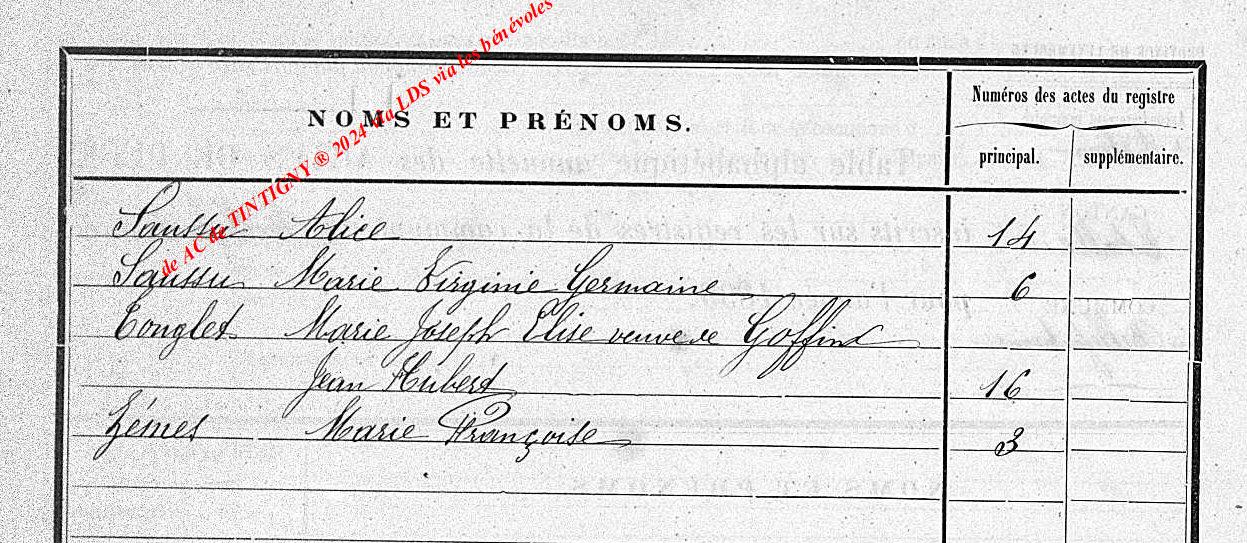 de AC de TINTIGNY ® 2024 via LDS via les bénévoles
NOMS ET PRÉNOMS.
Numéros des actes du registre
principal. supplémentaire.
Saussu Alice 14
Saussu Marie Virginie Germaine 6
Tonglet Marie Joseph Elise veuve de Goffin
Jean Hubert 16
Zémes Marie Françoise 3